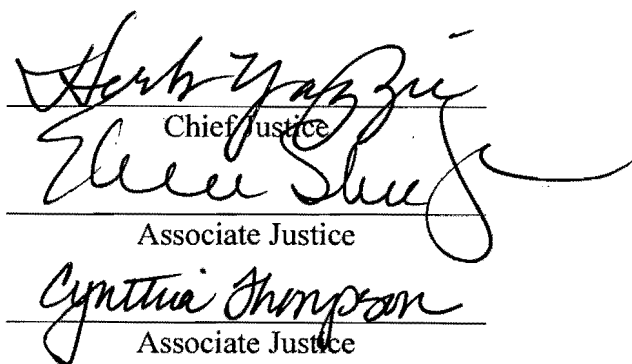 Herb Yazzie
Chief Justice
Associate Justice
Cynthia Thompson
Associate Justice